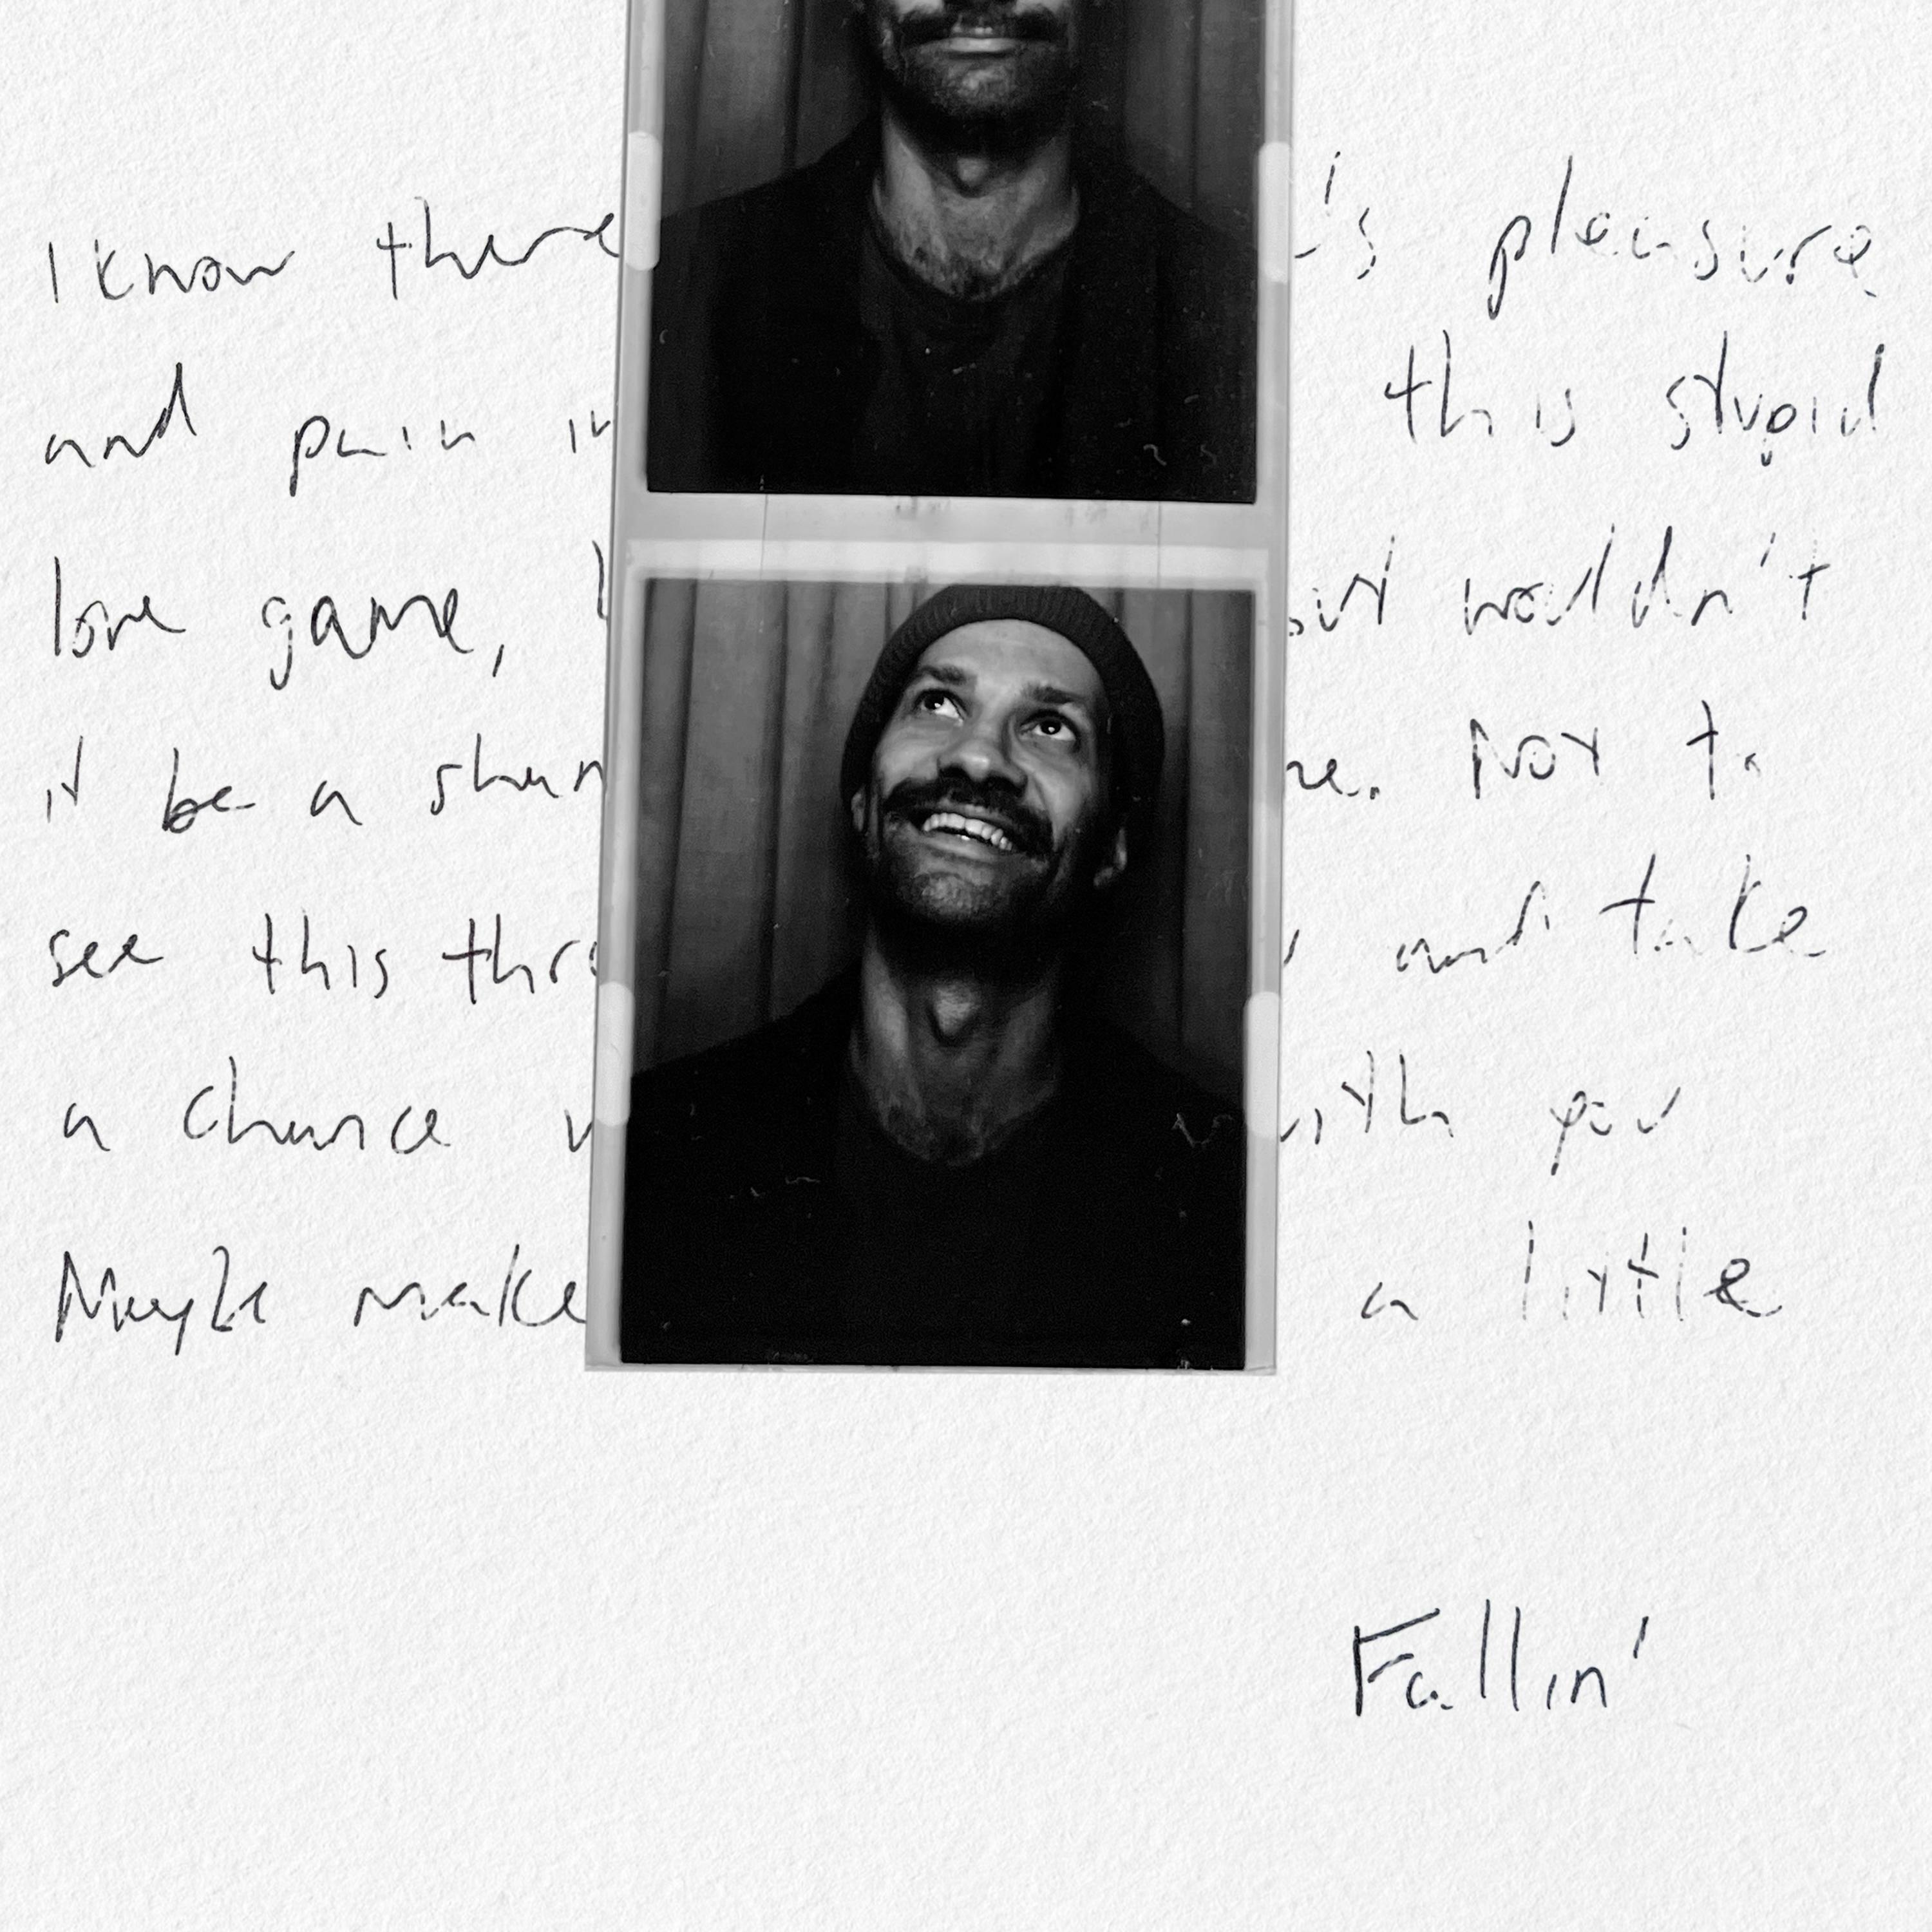 I know there's pleasure
and pain in this stupid
love game, but wouldn't
it be a shame. Not to
see this thro and take
a chance with you
Maybe make a little
Fallin'